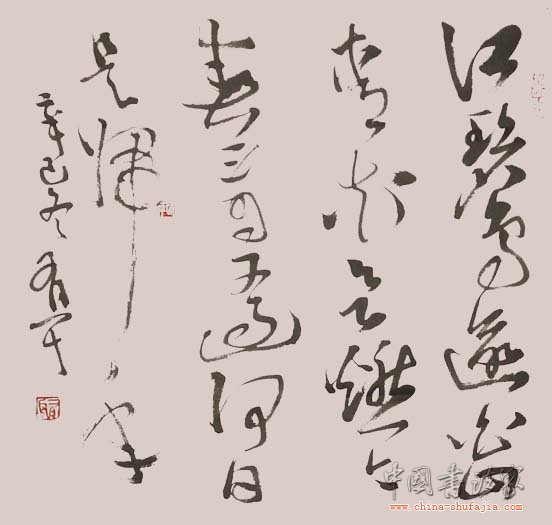 江碧鳥逾白山
青花欲燃今
春看又過何日
是歸年
辛巳冬
中國書法家
www.china-shufajia.com